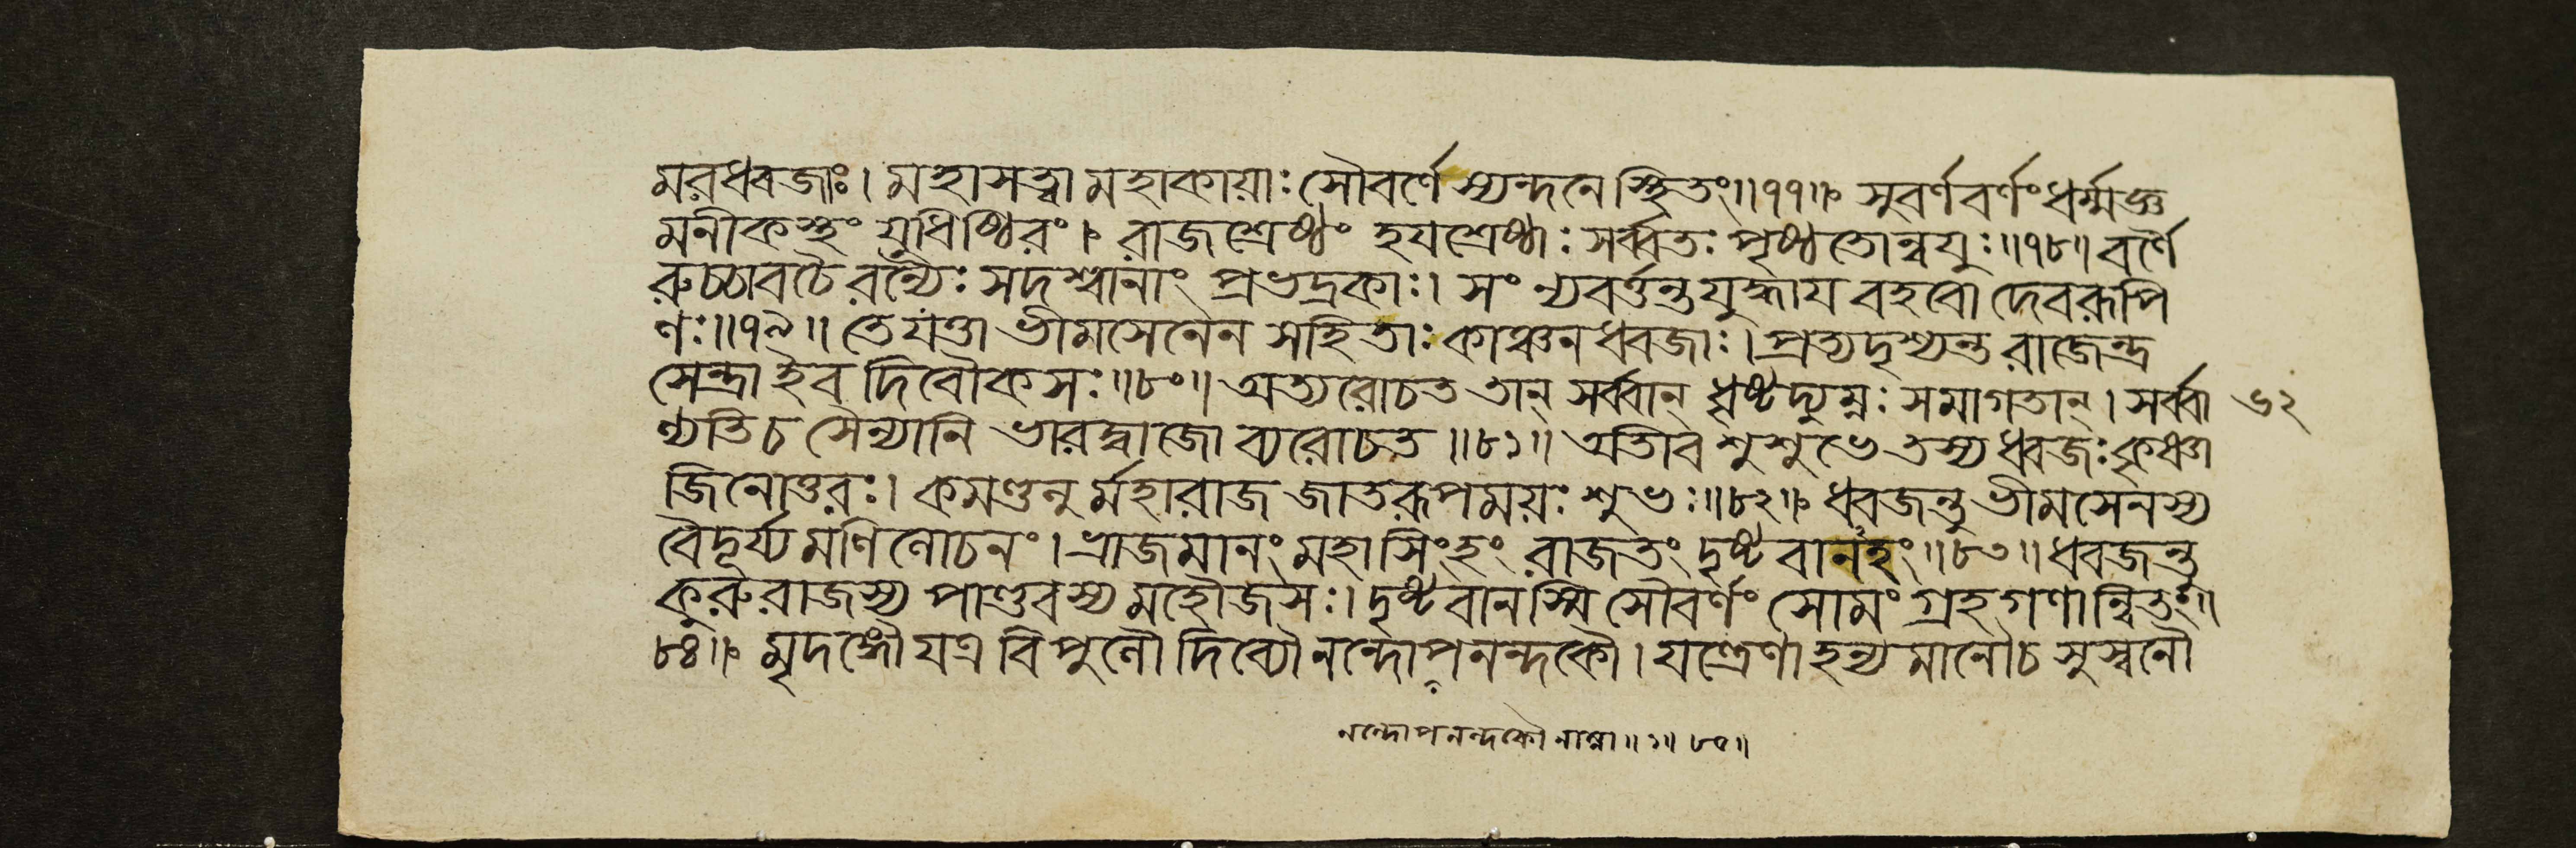 মরধ্বজাঃ। মহাসত্ত্বা মহাকায়াঃ সৌবর্ণে স্যন্দনে স্থিতং॥৭৭॥ সুবর্ণবর্ণং ধর্ম্মজ্ঞ
মনীকস্থং যুধিষ্ঠিরং। রাজশ্রেষ্ঠং হযশ্রেষ্ঠাঃ সর্ব্বতঃ পৃষ্ঠতোন্বযুঃ॥৭৮॥ বর্ণৈ
রুচ্চাবচৈরন্যৈঃ সদশ্বানাং প্রভদ্রকাঃ। সংন্যবর্ত্তন্ত যুদ্ধায বহবো দেবরূপি
ণঃ॥৭৯॥ তে যত্তা ভীমসেনেন সহিতাঃ কাঞ্চনধ্বজাঃ। প্রত্যদৃশ্যন্ত রাজেন্দ্র
সেন্দ্রা ইব দিবৌকসঃ॥৮০॥ অত্যরোচত তান্ সর্ব্বান্ ধৃষ্টদ্যুম্নঃ সমাগতান্। সর্ব্বা ৬২
ণ্যতি চ সৈন্যানি ভারদ্বাজো ব্যরোচত॥৮১॥ অতীব শুশুভে তস্য ধ্বজঃ কৃষ্ণা
জিনোত্তরঃ। কমণ্ডলু র্মহারাজ জাতরূপময়ঃ শুভঃ॥৮২॥ ধ্বজন্তু ভীমসেনস্য
বৈদূর্য্যমণিলোচনং। ভ্রাজমানং মহাসিংহং রাজতং দৃষ্টবানহং॥৮৩॥ ধ্বজন্তু
কুরুরাজস্য পাণ্ডবস্য মহৌজসঃ। দৃষ্টবানস্মি সৌবর্ণং সোমং গ্রহগণান্বিতং॥
৮৪॥ মৃদঙ্গৌ যত্র বিপুলৌ দিব্যৌ নন্দোপনন্দকৌ। যন্ত্রেণাহন্যমানৌ চ সুস্বনৌ
নন্দোপনন্দকৌ নাম্না॥১॥ ৮৫॥